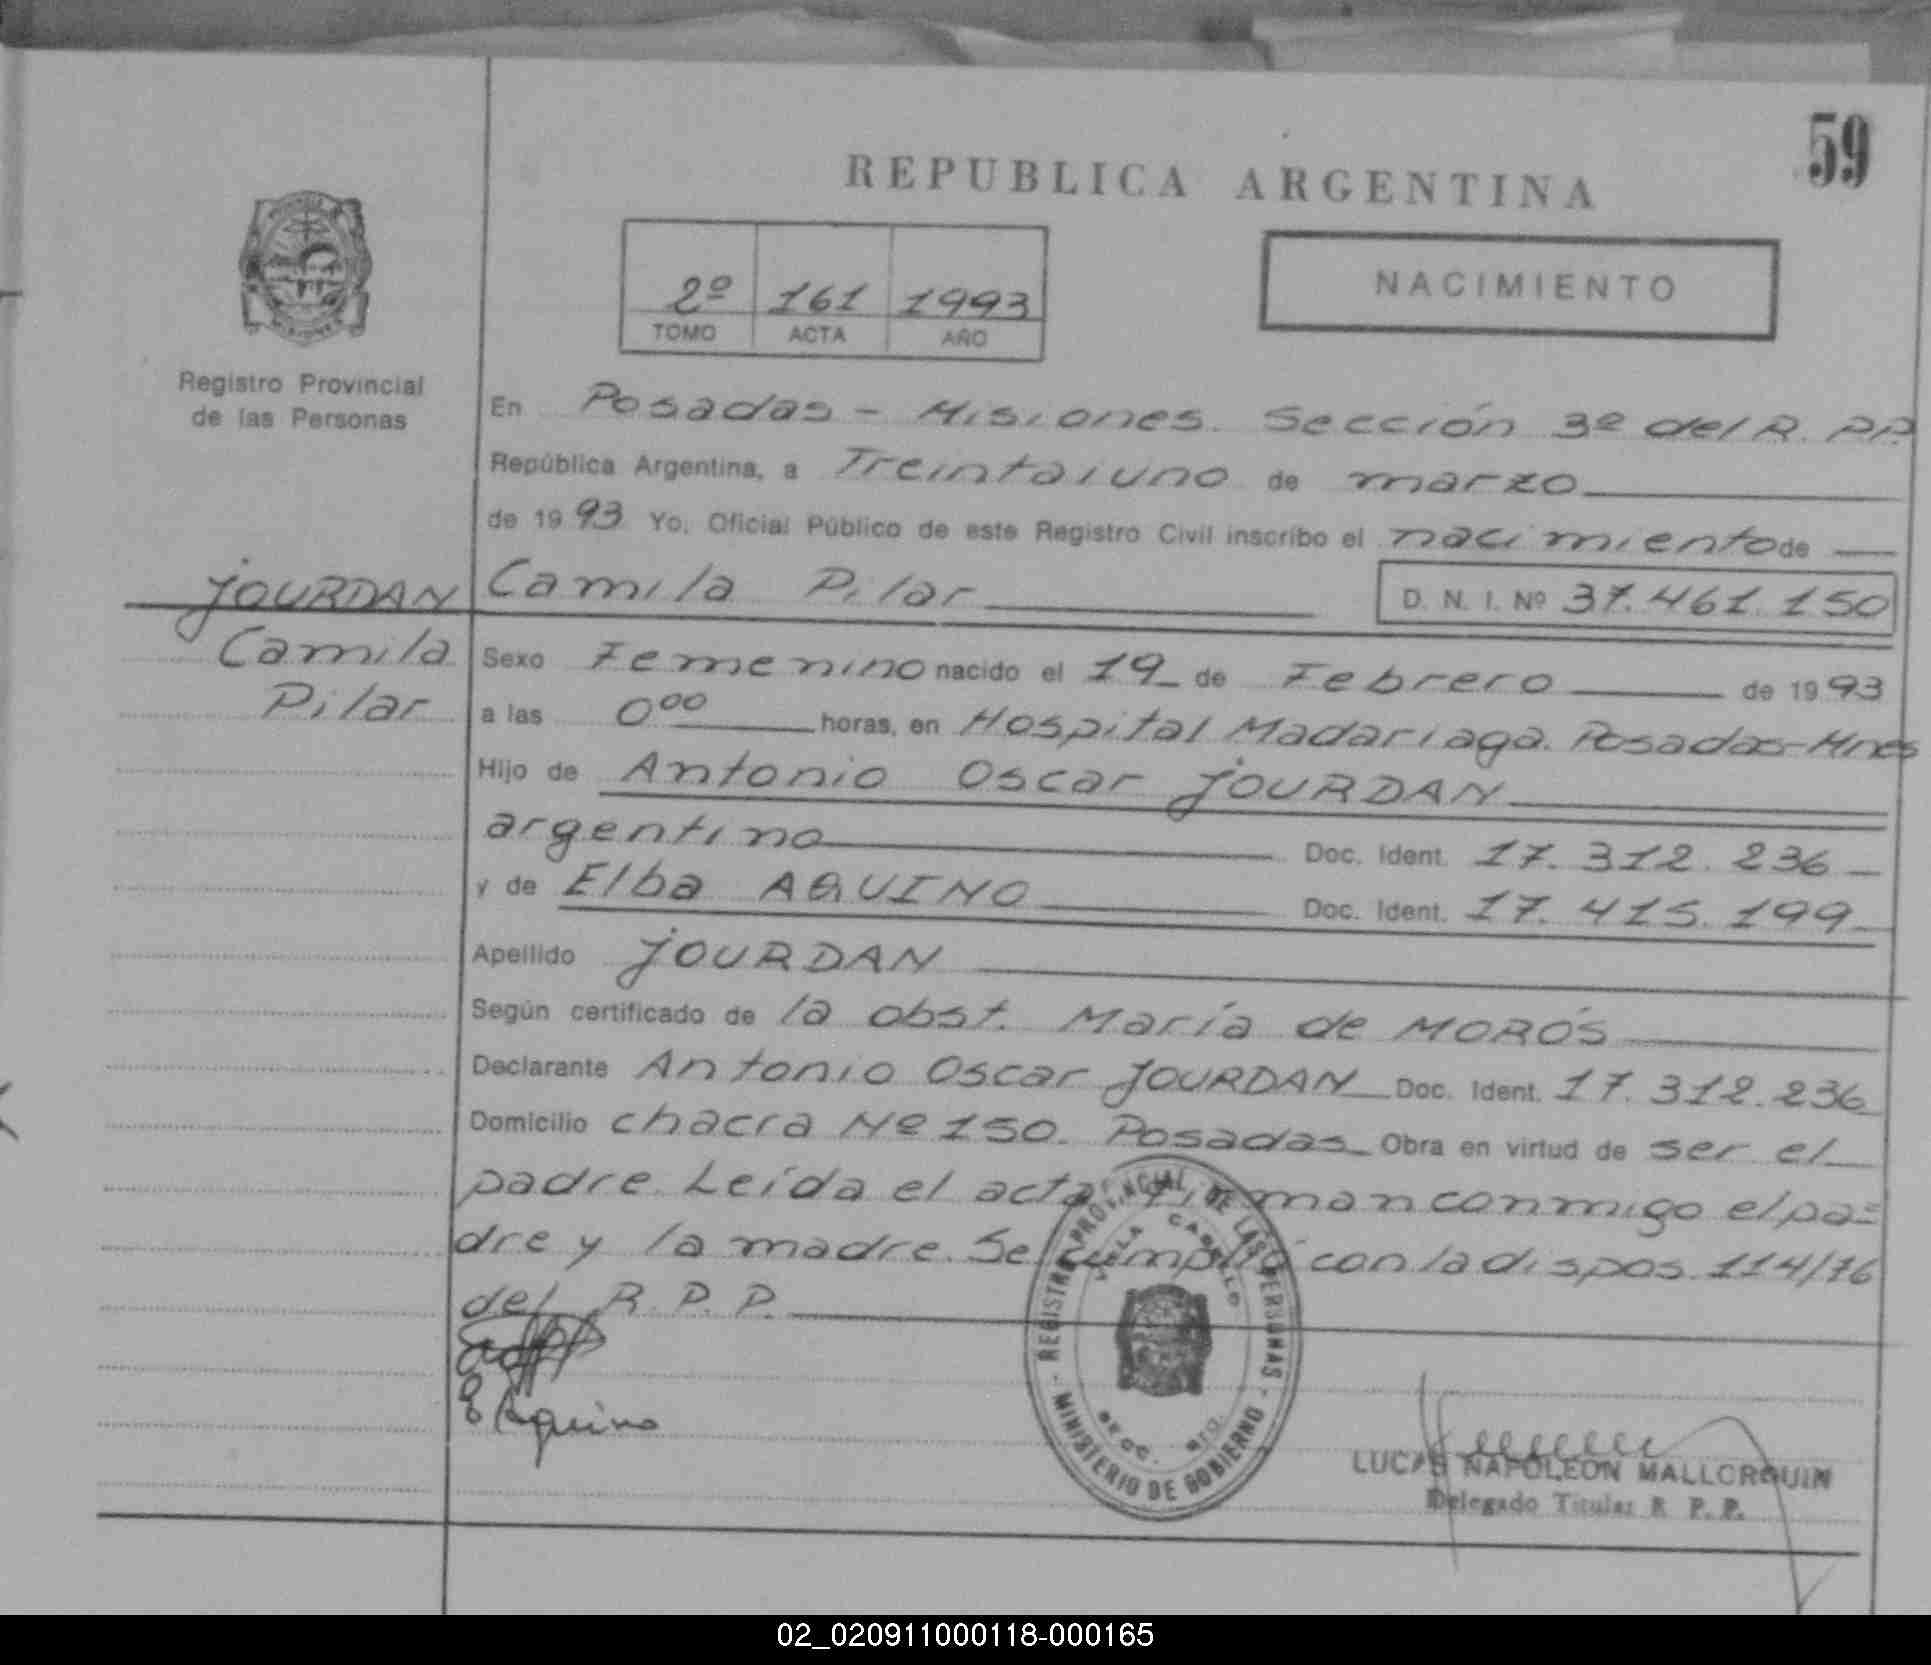 59
REPUBLICA ARGENTINA
2º 161 1993
TOMO ACTA AÑO
NACIMIENTO
Registro Provincial
de las Personas
JOURDAN
Camila
Pilar
En Posadas - Misiones. Sección 3º del R. PP.
República Argentina, a Treintaiuno de marzo
de 1993 Yo, Oficial Público de este Registro Civil inscribo el nacimiento de
Camila Pilar D. N. I. Nº 37.461.150
Sexo Femenino nacido el 19 de Febrero de 1993
a las 0⁰⁰ horas, en Hospital Madariaga. Posadas-Mnes
Hijo de Antonio Oscar JOURDAN
argentino Doc. Ident. 17.312.236
y de Elba AQUINO Doc. Ident. 17.415.199
Apellido JOURDAN
Según certificado de la obst. María de MORÓS
Declarante Antonio Oscar JOURDAN Doc. Ident. 17.312.236
Domicilio chacra Nº 150. Posadas Obra en virtud de ser el
padre. Leída el acta firman conmigo el pa=
dre y la madre. Se cumplió con la dispos. 114/76
del R. P. P.
E Aquino
REGISTRO PROVINCIAL DE LAS PERSONAS
VILLA CABELLO
MINISTERIO DE GOBIERNO
LUCAS NAPOLEON MALLORQUIN
Delegado Titular R. P. P.
02_020911000118-000165